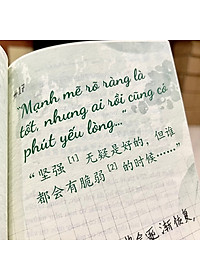 #17
"Mạnh mẽ rõ ràng là
tốt, nhưng ai rồi cũng có
phút yếu lòng..."
“坚强 [1] 无疑是好的，但谁
都会有脆弱 [2] 的时候……”
逐渐恢复,